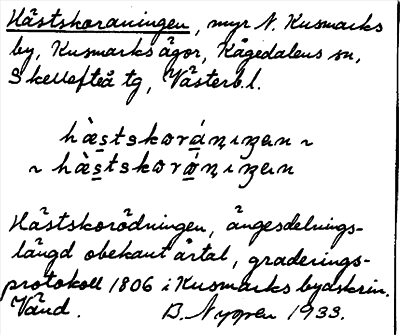 Hästskoraningen, myr N. Kusmarks
by, Kusmarks ägor, Kågedalens sn,
Skellefteå tg, Västerb. l.
hæ̀stskoráṇıŋen ~
~ hæ̀stskorǿṇıŋen
Hästskorödningen, ängesdelnings-
längd obekant årtal, graderings-
protokoll 1806 i Kusmarks bydskrin.
Vänd. B. Nygren 1933.